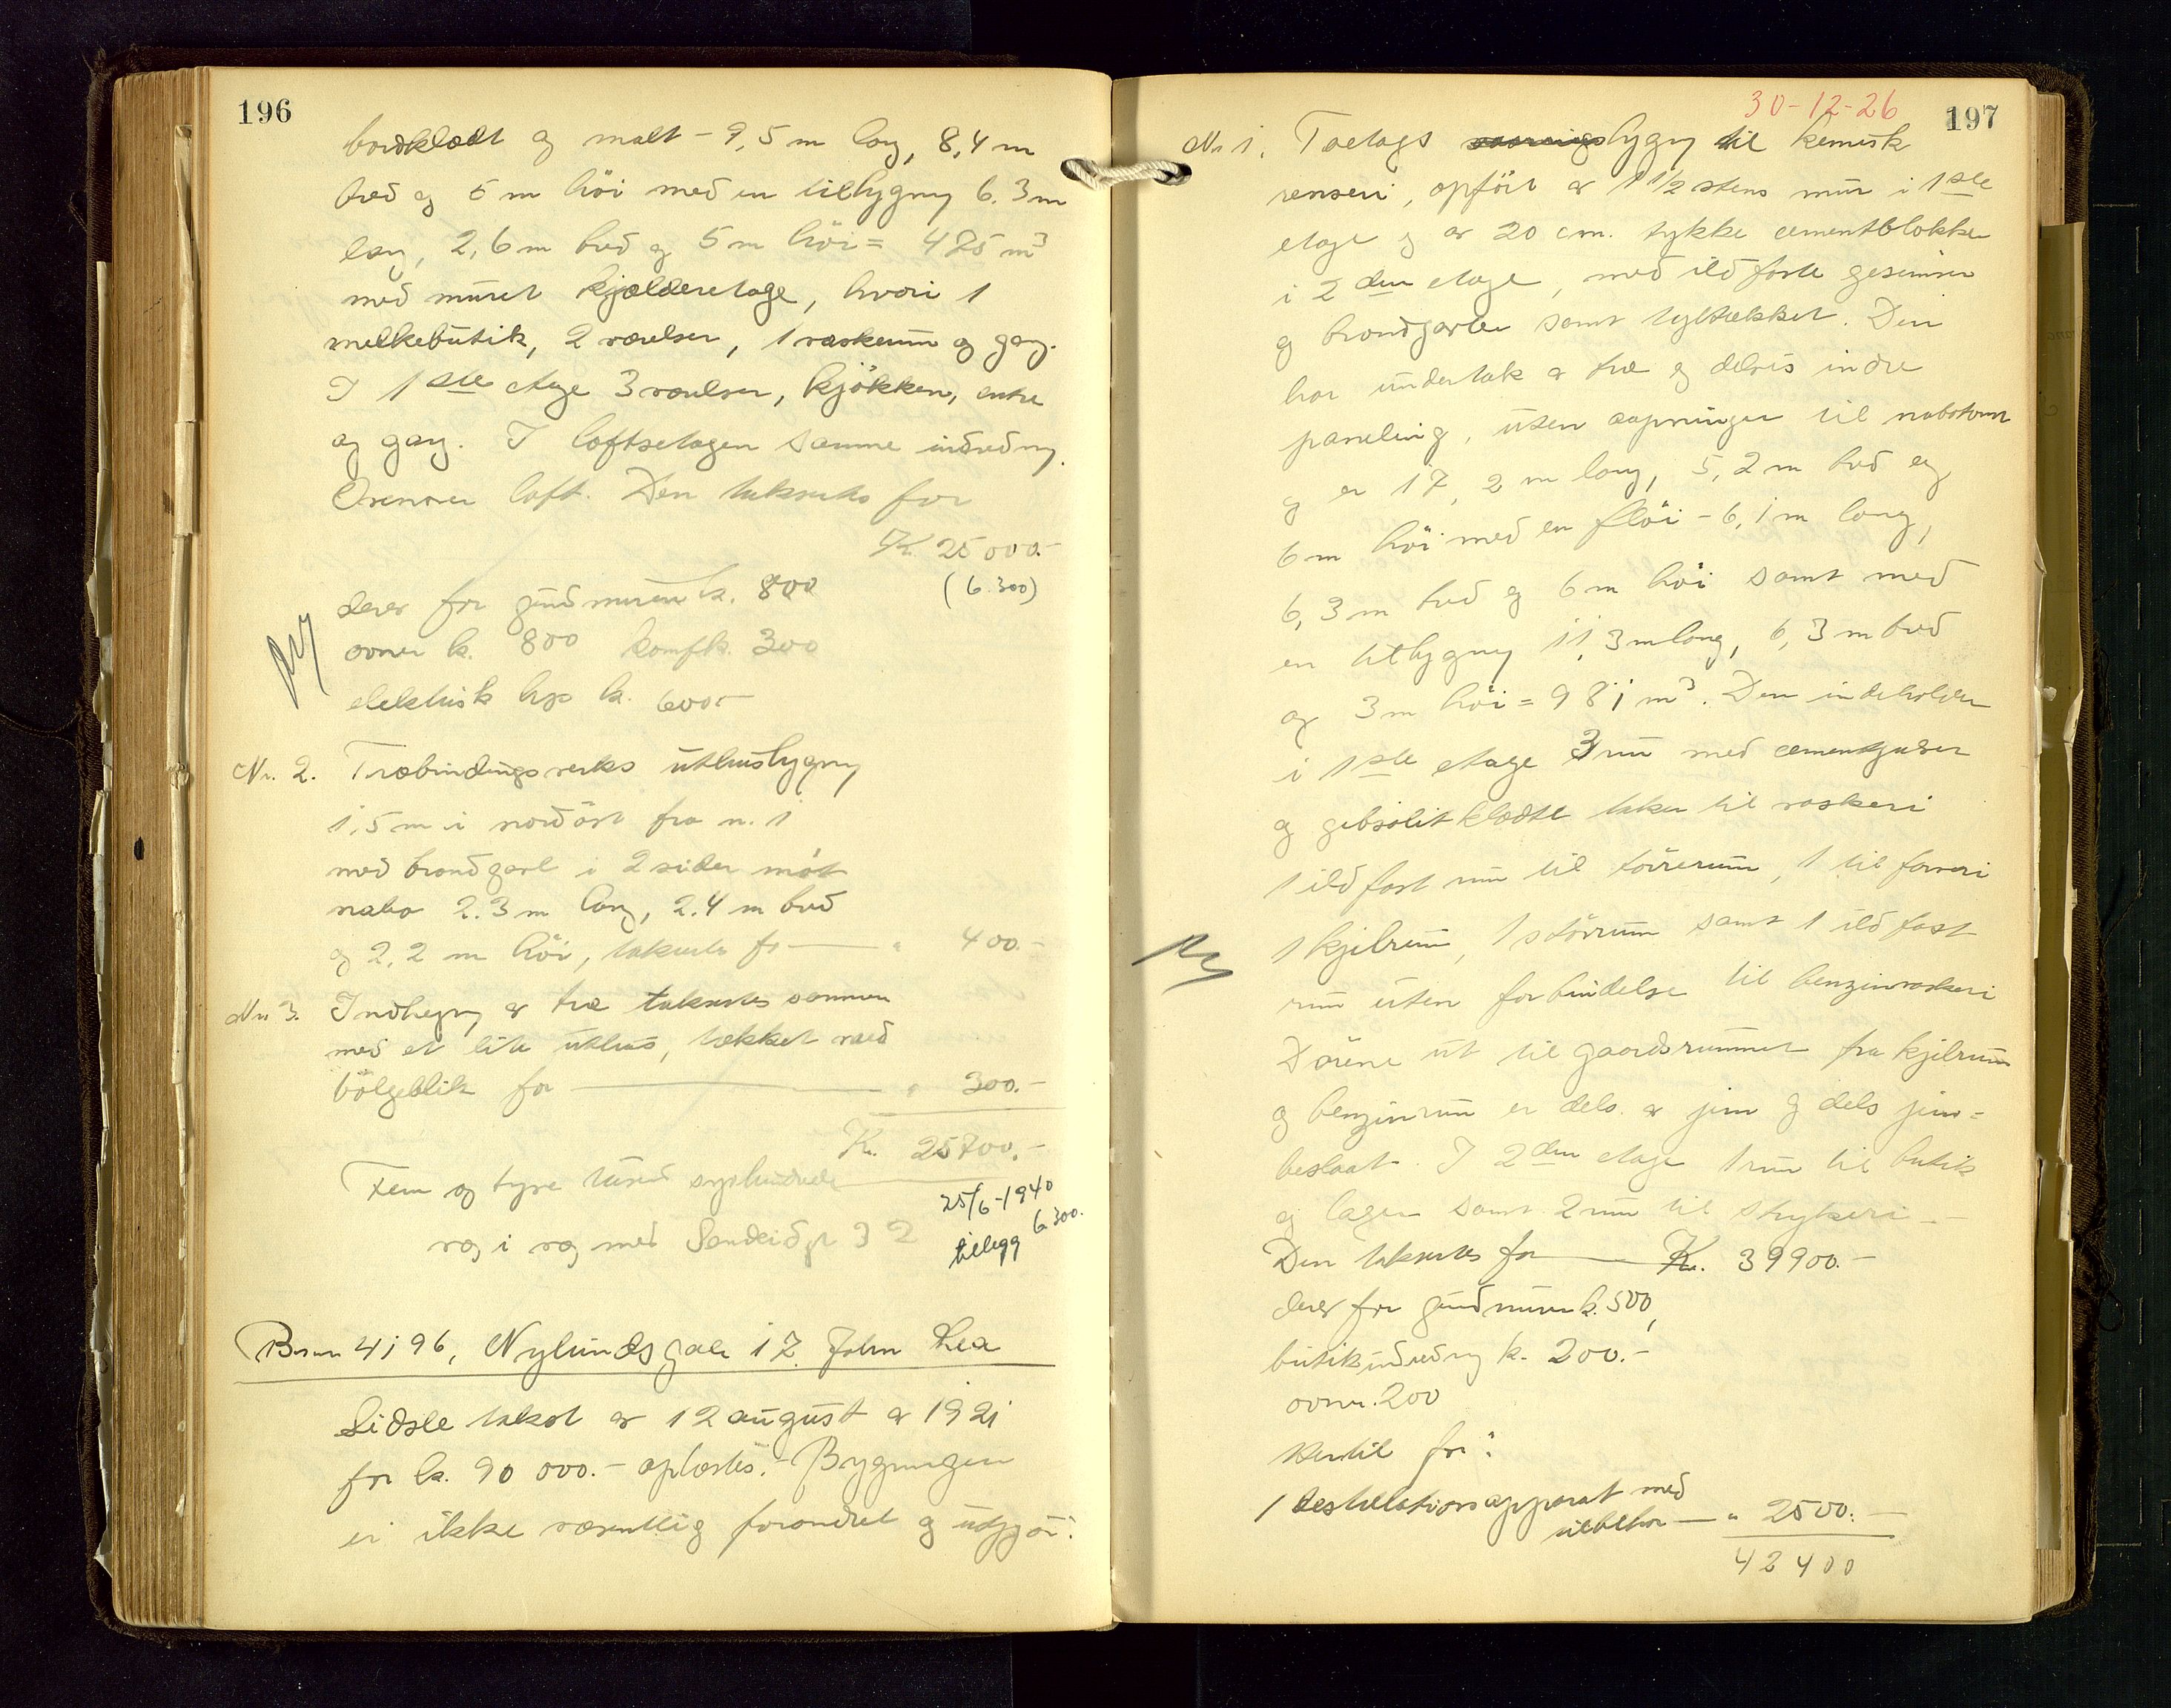 196
bordklædt og malt - 9,5 m lang, 8,4 m
bred og 5 m höi med en tilbygning 6.3 m
lang, 2,6 m bred og 5 m höi = 475 m³
med muret kjælderetage, hvori 1
melkebutik, 2 værelser, 1 vaskerum og gang.
I 1ste etage 3 værelser, kjökken, entre
og gang. I loftsetagen samme indredning.
Ovenover loft. Den takseres for
Kr. 25000.-
(6.300)
derav for grundmuren kr. 800
ovner kr. 800 komf kr. 300
elektrisk lys kr. 600.-
Nr. 2. Træbindingsverks uthusbygning
1,5 m i nordöst fra nr. 1
med brandgavl i 2 sider mot
nabo 2.3 m lang, 2.4 m bred
og 2,2 m höi, takseres for — " 400.-
Nr. 3. Indhegning av træ takseres sammen
med et lite uthus, tækket med
bölgeblik for — " 300.-
Kr. 25700.-
Fem og tyve tusind syvhundrede
vag i vag med Sandeidgt 32
25/6-1940
tillegg 6.300.
Br.nr 4196, Nylundsgate 17 John Lea
Sidste takst av 12 august av 1921
for kr. 90 000.- oplæstes. - Bygningen
er ikke væsentlig forandret og utgjör:
30-12-26
197
Nr 1. Toetags vaaningsbygn til kemisk
renseri, opfört av 1 1/2 stens mur i 1ste
etage og av 20 cm. tykke cementblokke
i 2den etage, med ildfaste gesimser
og brandgavler samt tegltækket. Den
har undertak av træ og delvis indre
paneling, uten aapninger til nabotomt
og er 17,2 m lang, 5,2 m bred og
6 m höi med en flöi - 6,1 m lang,
6,3 m bred og 6 m höi samt med
en tilbygning 11,3 m lang, 6,3 m bred
og 3 m höi = 981 m³. Den indeholder
i 1ste etage 3 rum med cementgulver
og gibsolitklædte taker til vaskeri
1 ildfast rum til törrerum, 1 til farveri
1 kjelrum, 1 störrum samt 1 ildfast
rum uten forbindelse til benzinvaskeri
Dörene ut til gaardsrummet fra kjelrum
og benzinrum er dels av jern og dels jern=
beslaat. I 2den etage 1 rum til butik
og lager samt 2 rum til strykeri -
Den takseres for — Kr. 39900.-
derav for grundmuren kr. 500,
butikindredning kr. 200.-
ovner. 200
Hertil for:
1 destillationsapparat med
tilbehör — " 2500.-
42400